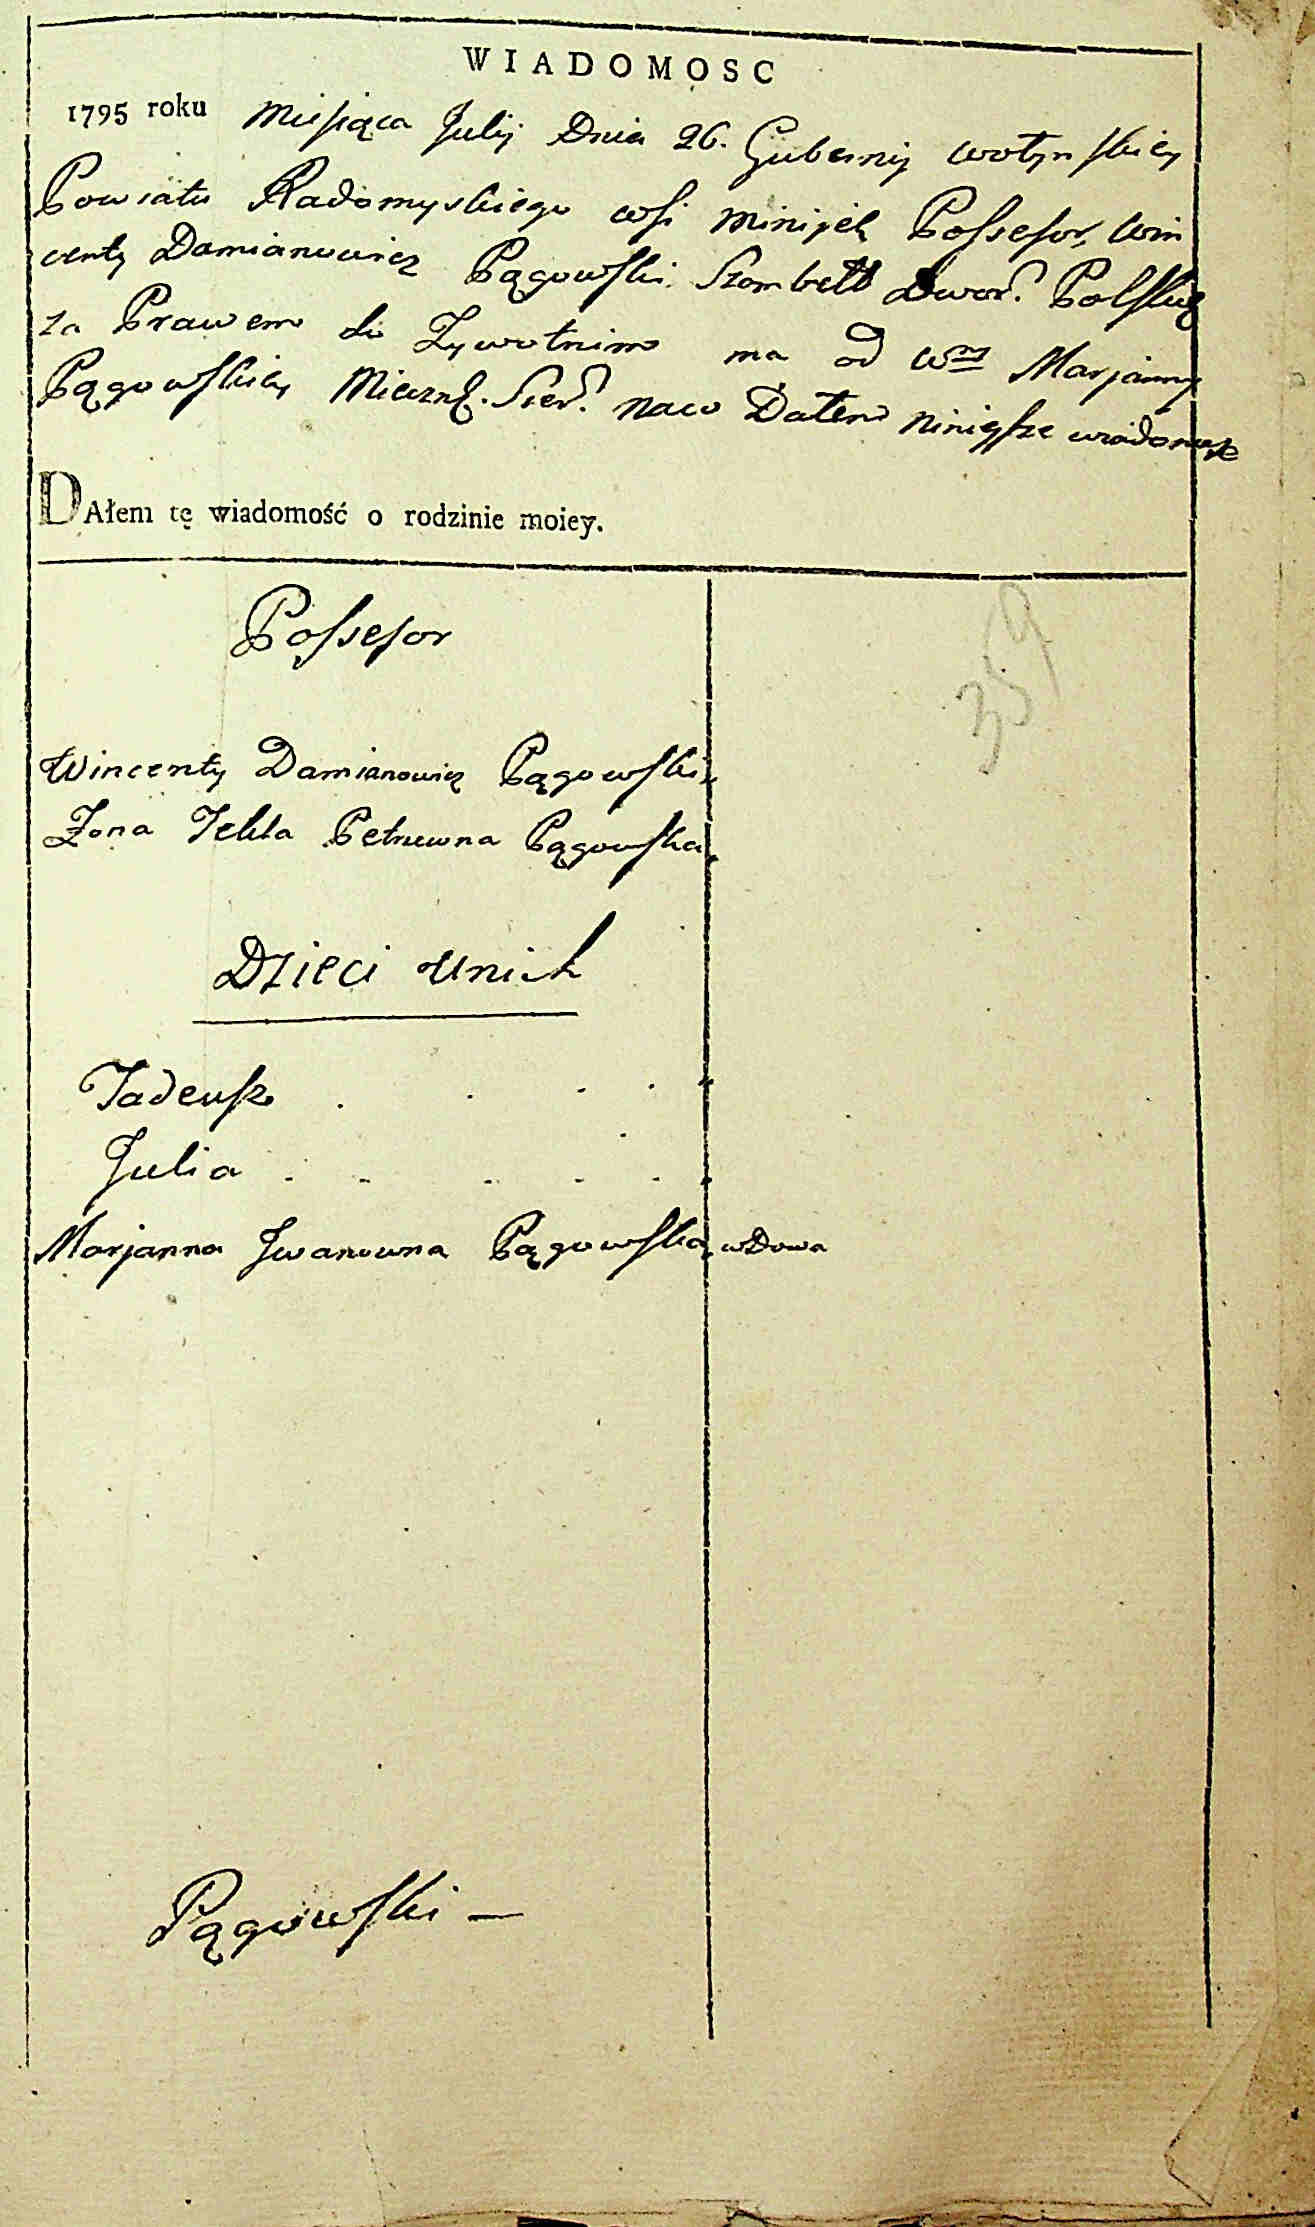 WIADOMOSC
1795 roku Miesiąca Julij Dnia 26. Gubernij wołynskiey
Powiatu Radomyskiego wsi Minijek Possesor, Win
centy Damianowicz Pągowski Szambell Dwor. Polskiego
za Prawem do Zywotnim ma od Wney Marjanny
Pągowskiey Mieczni. Sier. Naco Dałem Ninieysze wiadomość
DAłem tę wiadomość o rodzinie moiey.
Possesor
359
Wincenty Damianowicz Pągowski
Zona Tekla Petruwna Pągowska
Dzieci unich
Tadeusz
Julia
Marjanna Jwanowna Pągowska wdowa
Pągowski —